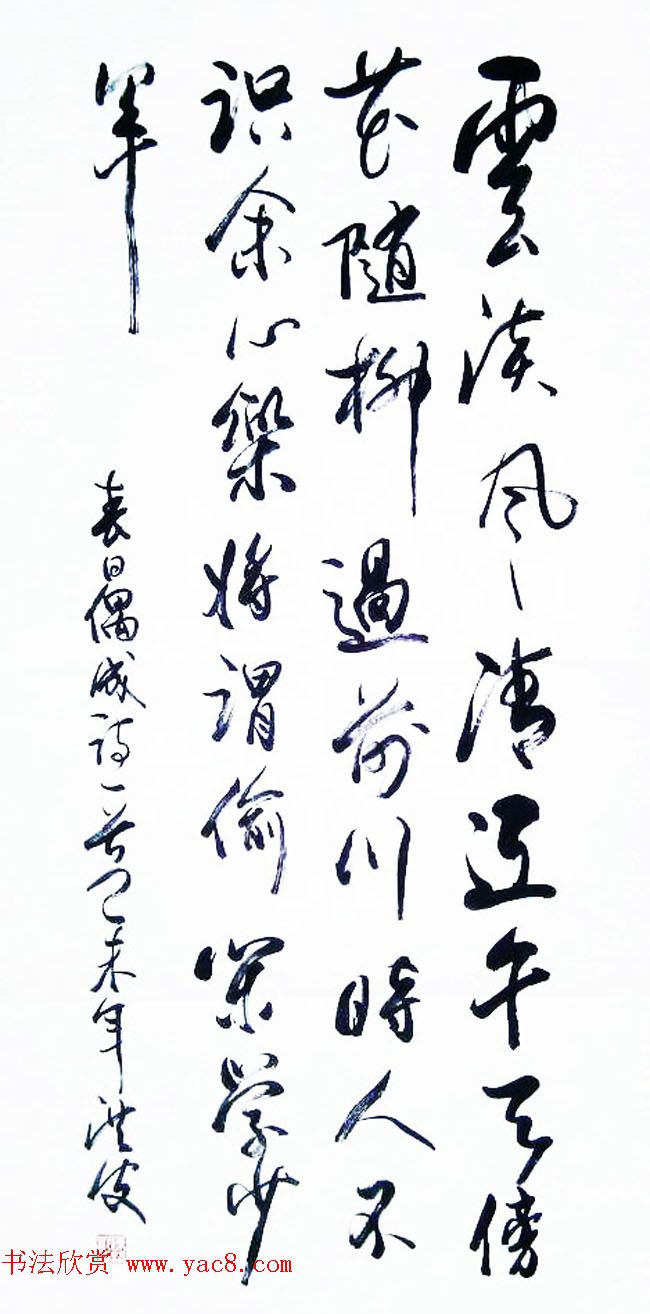 雲淡风清近午天傍
花随柳過前川時人不
识余心樂将謂偷閑学少
年
春日偶成诗一首乙未年洪波
书法欣赏 www.yac8.com